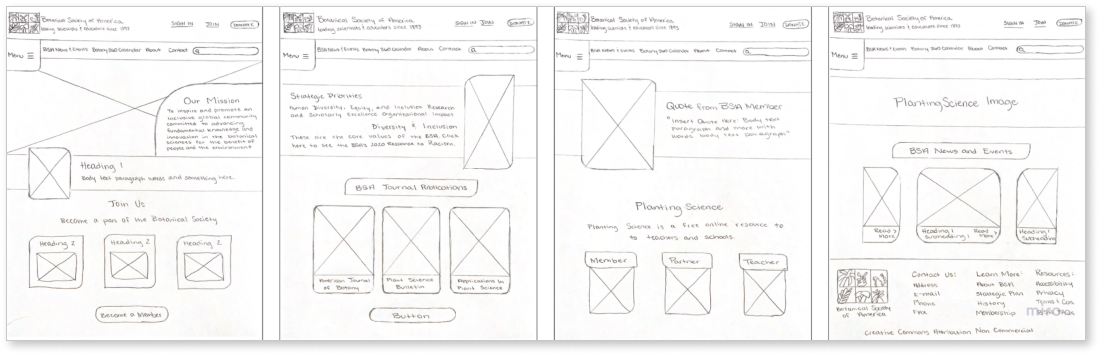 Botanical Society of America
leading scientists & educators since 1893
SIGN IN JOIN DONATE
Menu
BSA News & Events Botany 360 Calendar About Contact
Our Mission
To inspire and promote an
inclusive global community
committed to advancing
fundamental knowledge and
innovation in the botanical
sciences for the benefit of
people and the environment
Heading 1
Body text paragraph words and something here.
Join Us
Become a part of the Botanical Society
Heading 2 Heading 2 Heading 2
Become a Member
Botanical Society of America
leading scientists & educators since 1893
SIGN IN JOIN DONATE
Menu
BSA News & Events Botany 360 Calendar About Contact
Strategic Priorities
Human Diversity, Equity, and Inclusion Research
and Scholarly Excellence Organizational Impact
Diversity & Inclusion
These are the core values of the BSA. Click
here to see the BSA's 2020 Response to Racism.
BSA Journal Publications
American Journal
of Botany
Plant Science
Bulletin
Applications in
Plant Science
Button
Botanical Society of America
leading scientists & educators since 1893
SIGN IN JOIN DONATE
Menu
BSA News & Events Botany 360 Calendar About Contact
Quote from BSA Member
"Insert Quote Here: Body text
paragraph and more with
words body text paragraph"
Planting Science
Planting Science is a free online resource to
to teachers and schools.
Member Partner Teacher
Botanical Society of America
leading scientists & educators since 1893
SIGN IN JOIN DONATE
Menu
BSA News & Events Botany 360 Calendar About Contact
PlantingScience Image
BSA News and Events
Read >
More
Heading 1
Subheading 1
Read >
More
Heading 1
Subheading
Botanical Society
of America
Contact Us:
Address
E-mail
Phone
Fax
Learn More:
About BSA
Strategic Plan
History
Membership
Resources:
Accessibility
Privacy
Terms & Con
Creative Commons Attribution Non Commercial